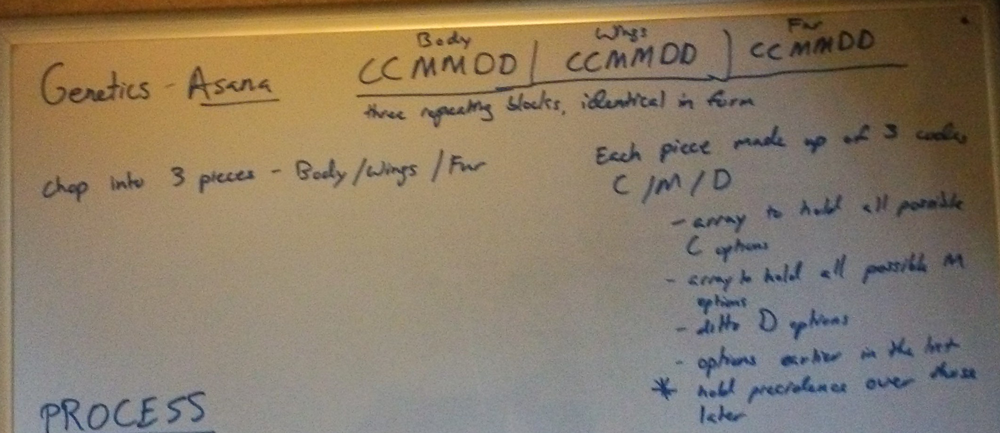 Body Wings Fur
Genetics - Asana CCMMDD | CCMMDD ) CCMMDD
three repeating blocks, identical in form
Chop into 3 pieces - Body/Wings/Fur
Each piece made up of 3 codes
C/M/D
- array to hold all possible
C options
- array to hold all possible M
options
- ditto D options
- options earlier in the list
* hold precidence over those
later
PROCESS